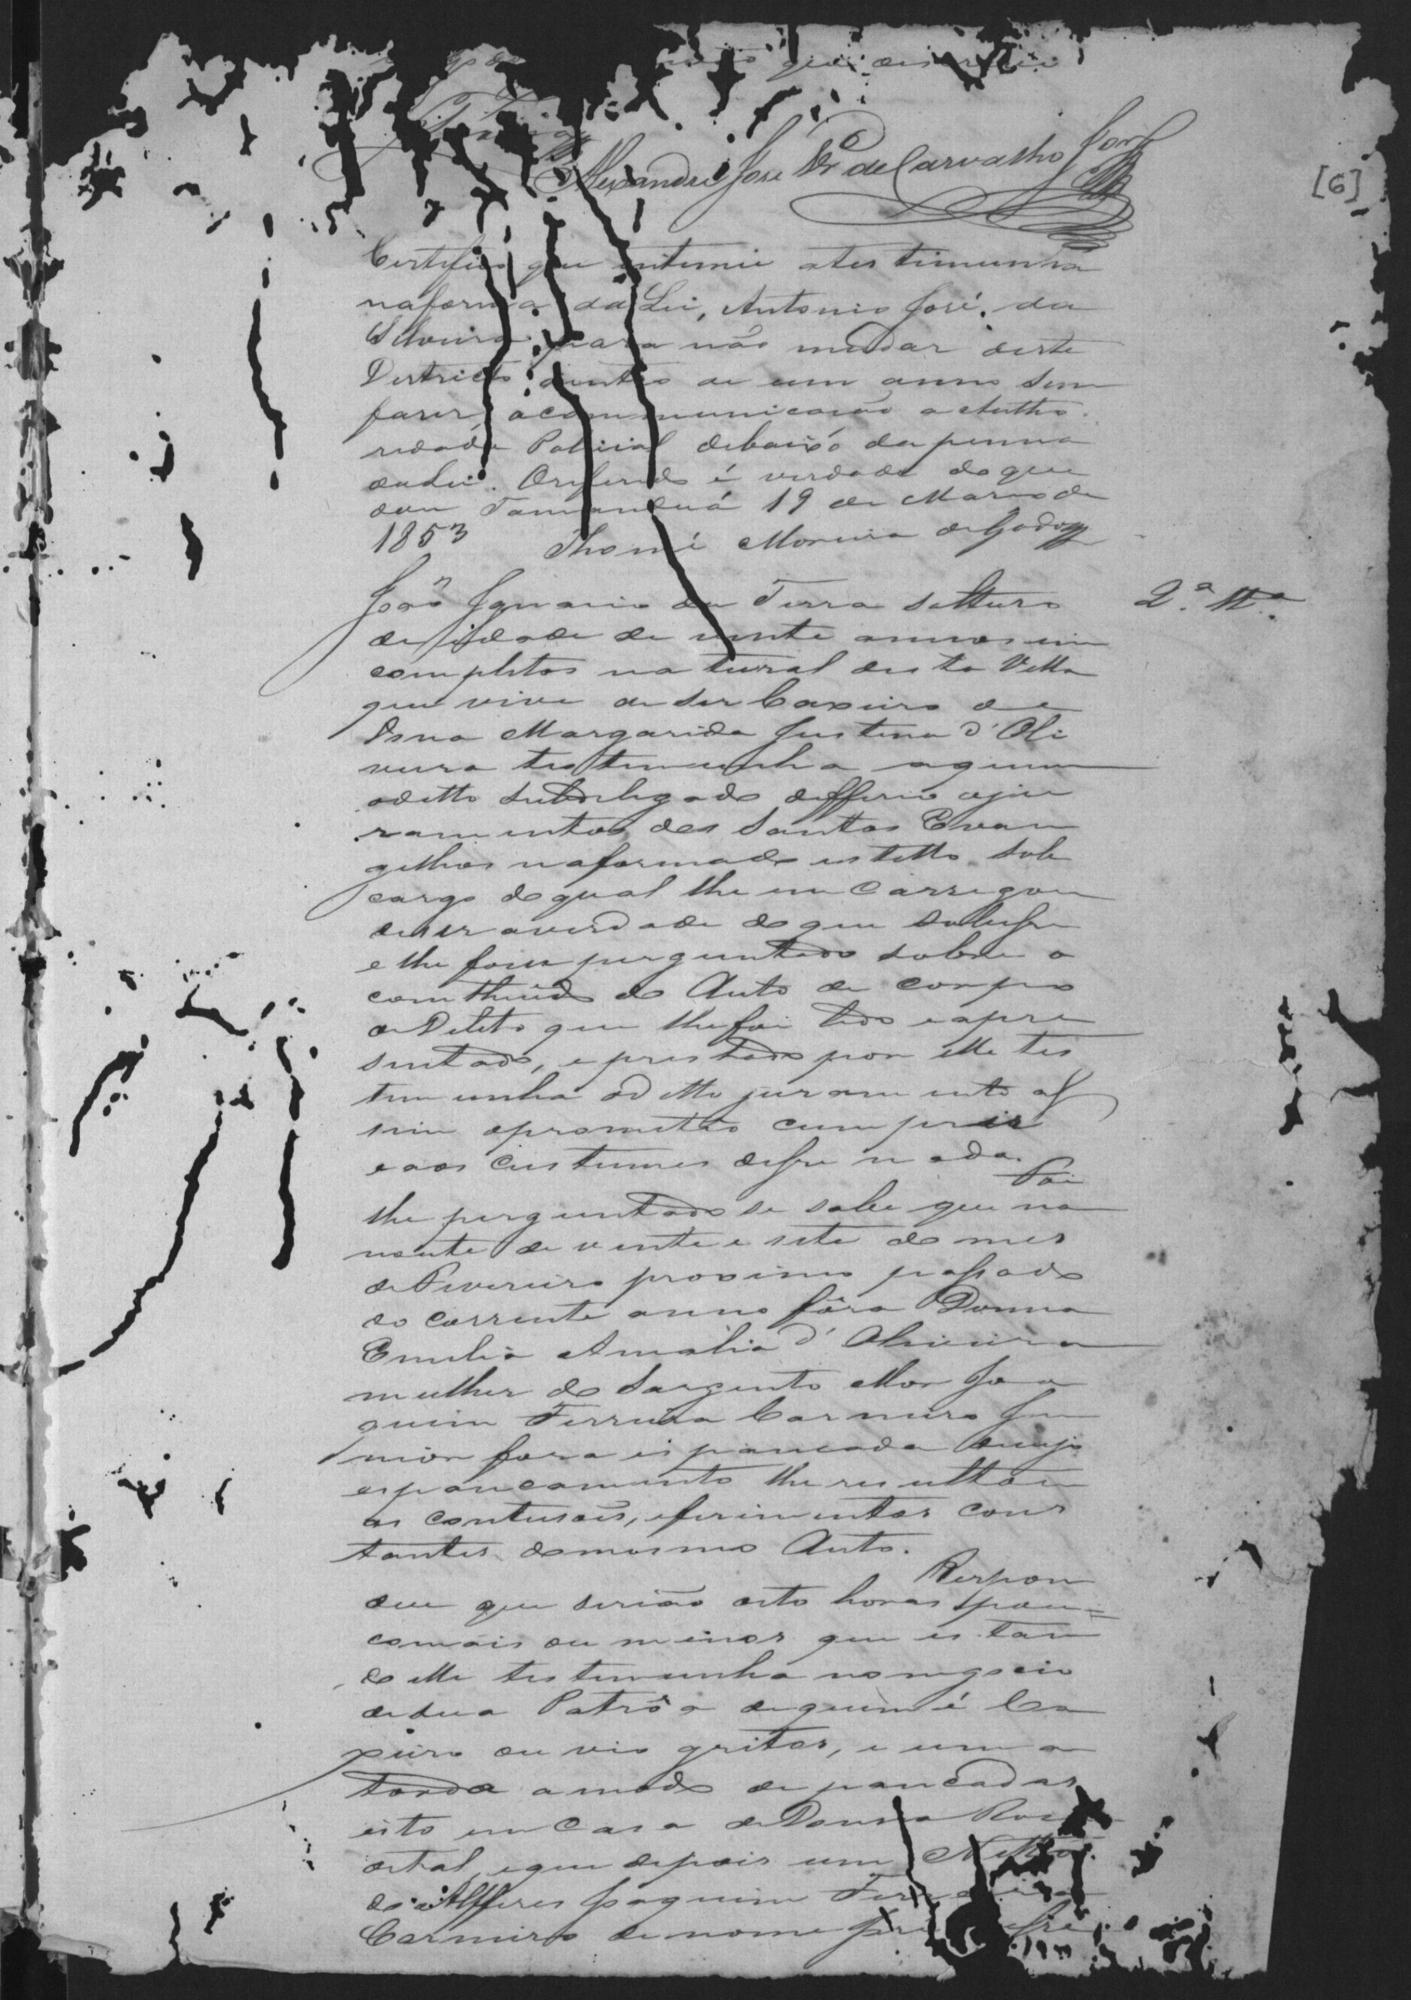 que
Alexandre José Per.ª de Carvalho
[6]
Certifico que intimei a testimunha
na forma da Lei, Antonio José da
Silveira para não mudar deste
Districto dentro de um anno sem
faser a communicacão a Autho
ridade Policial debaixo da penna
da Lei. O referido é verdade do que
dou Tamanduá 19 de Março de
1853 Thomé Moreira de Godoy
João Ignacio da Terra solteiro
2.ª Tt.ª
de idade de vinte annos in
completos natural desta Villa
que vive de ser Caxeiro de
Dona Margarida Justina d'Oli
veira testemunha a quem
o ditto Subdelegado defferio o ju
ramento dos Santos Evan
gelhos na forma do estillo sob
cargo do qual lhe encarregou
diser a verdade do que soubesse
e lhe fosse perguntado sobre o
comthiudo do Auto de corpo
de Delito que lhe foi lido e apre
sentado, e prestado por elle tes
temunha o ditto juramento as
sim o prometeo cumprir
e aos custumes disse nada.
Foi
lhe perguntado se sabe que na
noute de vinte e sete do mes
de Fevereiro proximo passado
do corrente anno fôra Donna
Emilia Amalia d'Oliveira
mulher do Sargento Mor Joa
quim Ferreira Carneiro Ju
nior fora espancada de cujo
espancamento lhe resultou
as contusoes, e ferimentos cons
tantes do mesmo Auto.
Respon
deu que serião oito horas pou=
co mais ou menos que estan
do elle testemunha no negocio
de sua Patrôa de quem é Ca
xeiro ouvio gritos, e um a
toada a modo de pancadas
isto em casa de Donna
de tal, e que depois um Netto
do Alferes Joaquim Ferreira
Carneiro de nome José